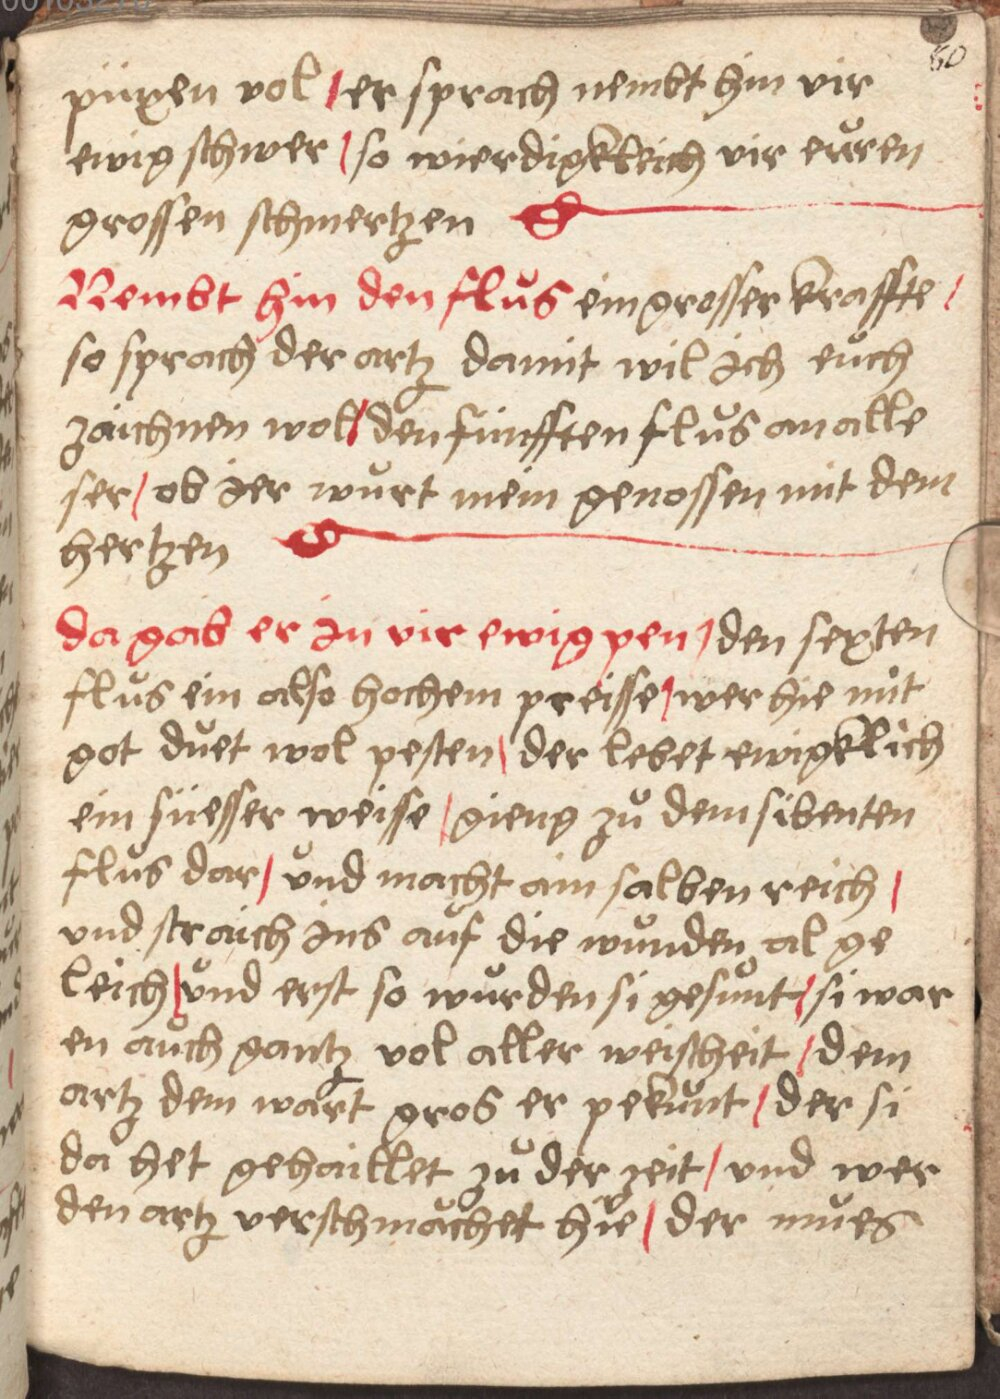 60
püxen vol / er sprach nembt hin vir
ewig schwer / so wierdigkleich vir euren
grossen schmertzen
Nembt hin den flus ein grosser kraffte /
so sprach der artz damit wil ich euch
zaichnen wol / den fünfften flus an alle
ser / ob ier wurt mein genossen mit dem
hertzen
da gab er in vir ewig pen / den sexten
flus ein also hochem preisse / wer hie mit
got duet wol pesten / der lebet ewigklich
ein süesser weisse / gieng zu dem sibenten
flus dar / und macht ain salben reich /
und straich ins auf die wunden al ge
leich / und erst so wurden si gesunt / si war
en auch gantz vol aller weisheit / dem
artz dem wart gros er pekunt / der si
da het gehaillet zu der zeit / und wer
den artz verschmachet hie / der mues